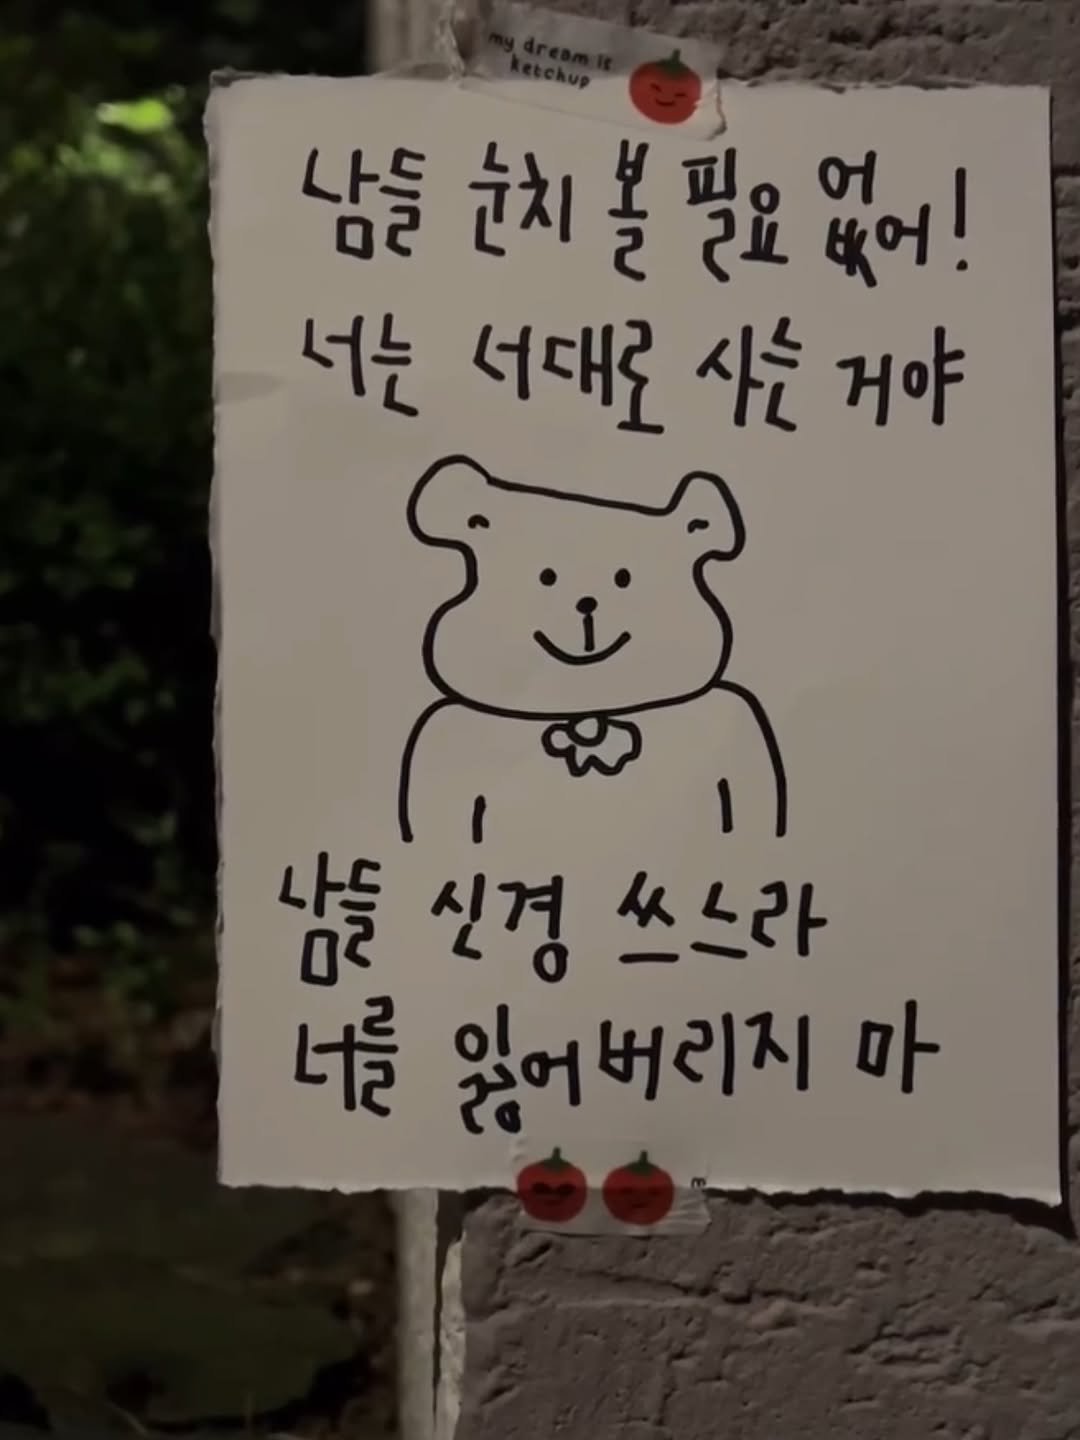 my dream is
ketchup
남들 눈치 볼 필요 없어!
너는 너대로 사는 거야
남들 신경 쓰느라
너를 잃어버리지 마
m